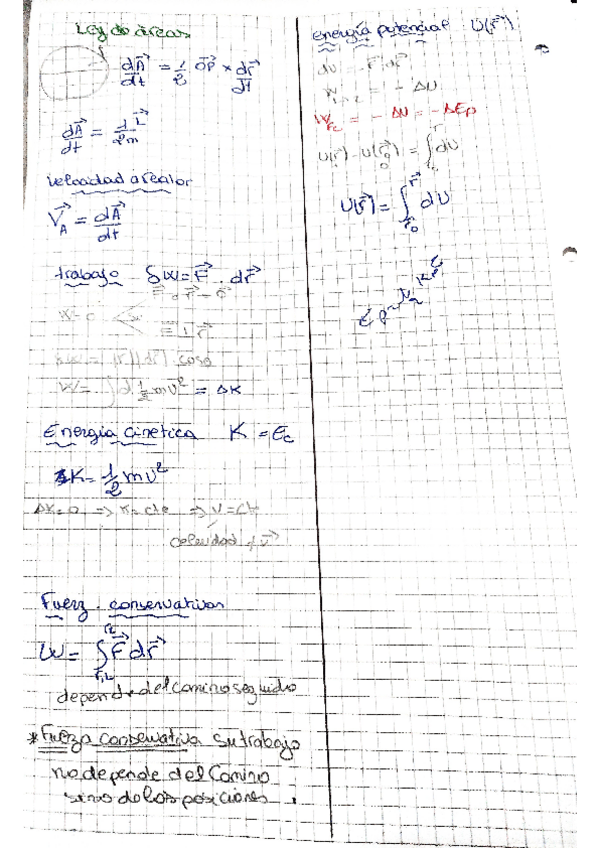 Ley de áreas
dA⃗/dt = 1/2 OP⃗ × dr⃗/dt
dA⃗/dt = 1/2m L⃗
velocidad areolar
V⃗_A = dA⃗/dt
trabajo δW = F⃗ . dr⃗
W=0
δW = |F||dr| cosα
W = ∫ d 1/2 mv² = ΔK
Energía cinetica K = Ec
K = 1/2 mv²
ΔK=0 ⇒ K=cte ⇒ v=ct
celeridad ≠ v⃗
Fuerz. conservativas
W = ∫ F⃗ dr⃗
depende del camino seguido
*Fuerza conservativa su trabajo
no depende del Camino
sino de las posiciones.
energía potencial U(r⃗)
W₁→₂ = - ΔU
W_Fc = - ΔU = -ΔEp
U(r⃗) - U(r⃗₀) = ∫ dU
U(r⃗) = ∫_r⃗₀^r⃗ dU